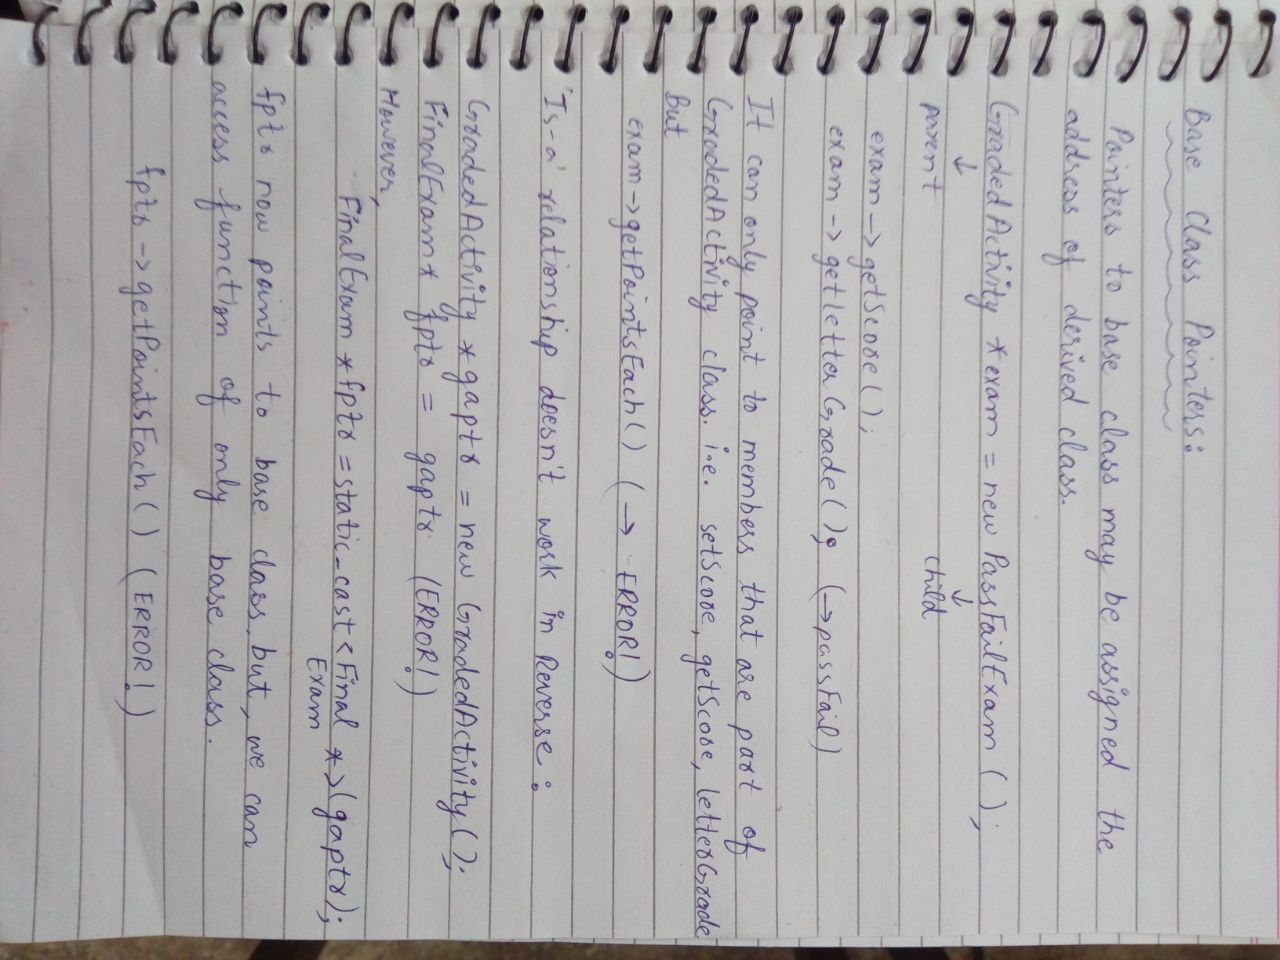 Base Class Pointers:
Pointers to base class may be assigned the
address of derived class.
GradedActivity *exam = new PassFailExam ( );
↓ ↓
parent child
exam->getScore( );
exam->getLetterGrade( ); (→passFail)
It can only point to members that are part of
GradedActivity class. i.e. setScore, getScore, letterGrade
But
exam->getPointsEach() (→ ERROR!)
'Is-a' relationship doesn't work in Reverse:
GradedActivity *gaptr = new GradedActivity( );
FinalExam* fptr = gaptr (ERROR!)
However,
FinalExam *fptr = static_cast<Final *>(gaptr);
Exam
fptr now points to base class, but, we can
access function of only base class.
fptr->getPointsEach( ) (ERROR!)